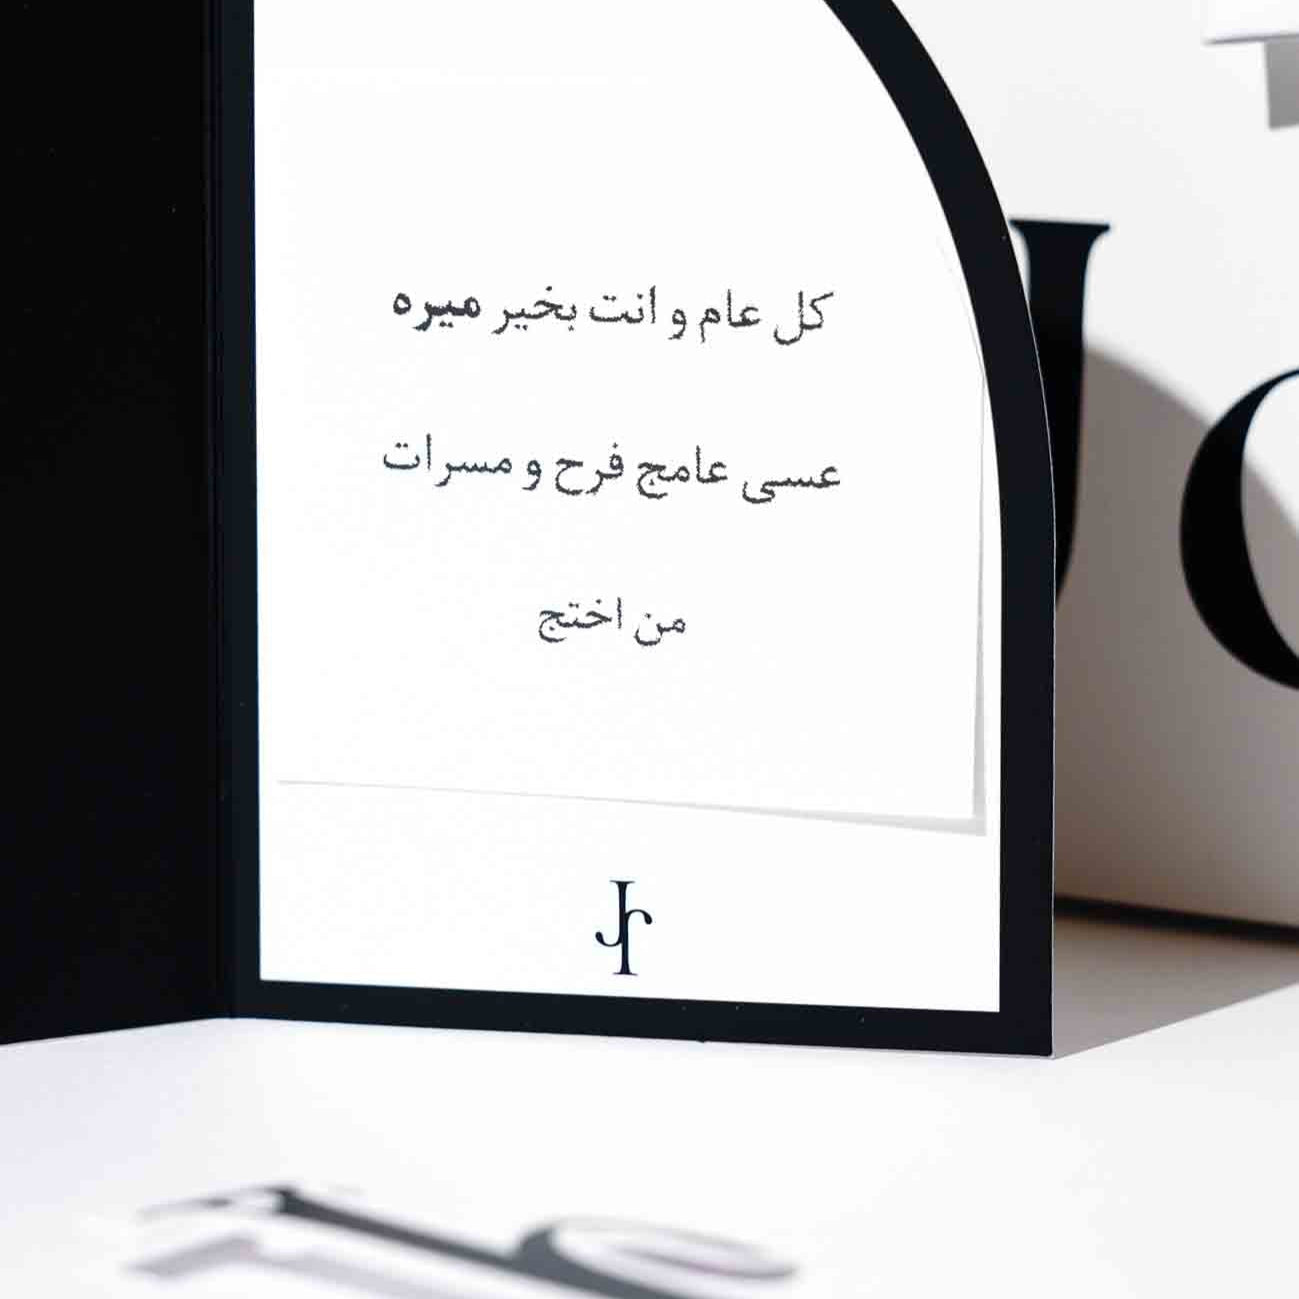 كل عام و انت بخير ميره
عسى عامج فرح و مسرات
من اختج
Jr